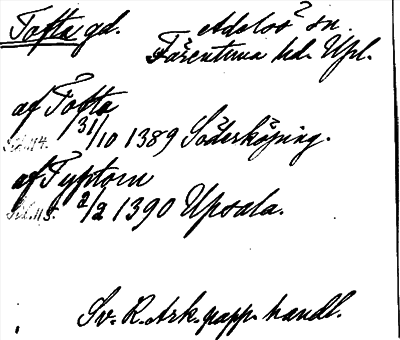 Tofta gd. Adelsö sn.
Färentuna hd. Upl.
af Tofta
31/10 1389 Söderköping.
af Typtom
2/2 1390 Upsala.
Sv. R. Ark. papp. handl.